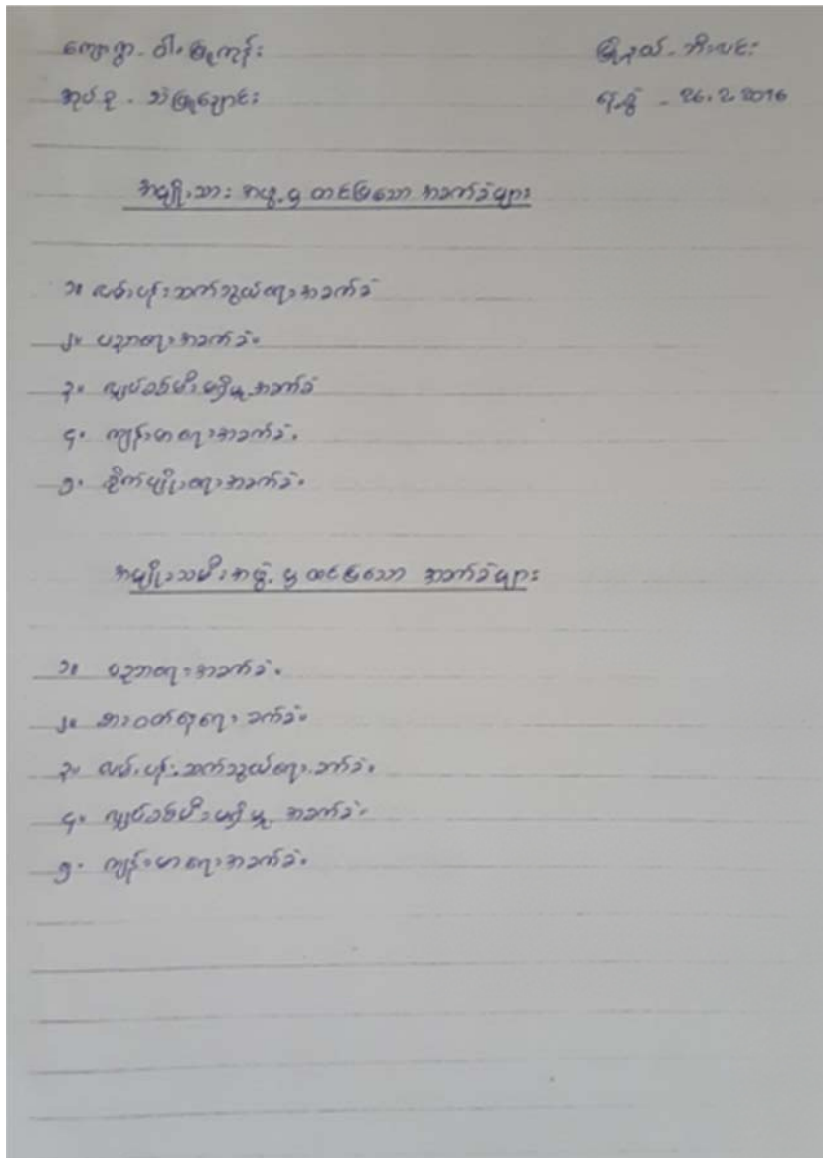 ကျေးရွာ - ဝါးဖြူကုန်း မြို့နယ် - ဘီးလင်း
အုပ်စု - ဘဲဖြူချောင်း ရက်စွဲ - 26.2.2016
အမျိုးသား အဖွဲ့မှ တင်ပြသော အခက်ခဲများ
၁။ လမ်းပန်းဆက်သွယ်ရေးအခက်ခဲ
၂။ ပညာရေးအခက်ခဲ။
၃။ လျှပ်စစ်မီးမရှိမှု အခက်ခဲ
၄။ ကျန်းမာရေးအခက်ခဲ။
၅။ စိုက်ပျိုးရေးအခက်ခဲ။
အမျိုးသမီးအဖွဲ့မှ တင်ပြသော အခက်ခဲများ
၁။ ပညာရေးအခက်ခဲ။
၂။ စားဝတ်နေရေး ခက်ခဲ။
၃။ လမ်းပန်းဆက်သွယ်ရေး ခက်ခဲ။
၄။ လျှပ်စစ်မီးမရှိမှု အခက်ခဲ။
၅။ ကျန်းမာရေးအခက်ခဲ။